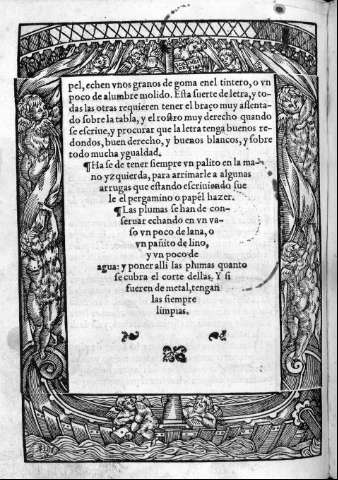 pel, echen vnos granos de goma enel tintero, o vn
poco de alumbre molido. Esta suerte de letra, y to-
das las otras requieren tener el braço muy assenta-
do sobre la tabla, y el rostro muy derecho quando
se escriue, y procurar que la letra tenga buenos re-
dondos, buen derecho, y buenos blancos, y sobre
todo mucha ygualdad.
¶ Ha se de tener siempre vn palito en la ma-
no yzquierda, para arrimarle a algunas
arrugas que estando escriuiendo sue
le el pergamino o papel hazer.
¶ Las plumas se han de con-
seruar echando en vn va-
so vn poco de lana, o
vn pañito de lino,
y vn poco de
agua: y poner alli las plumas quanto
se cubra el corte dellas. Y si
fueren de metal, tengan
las siempre
limpias.